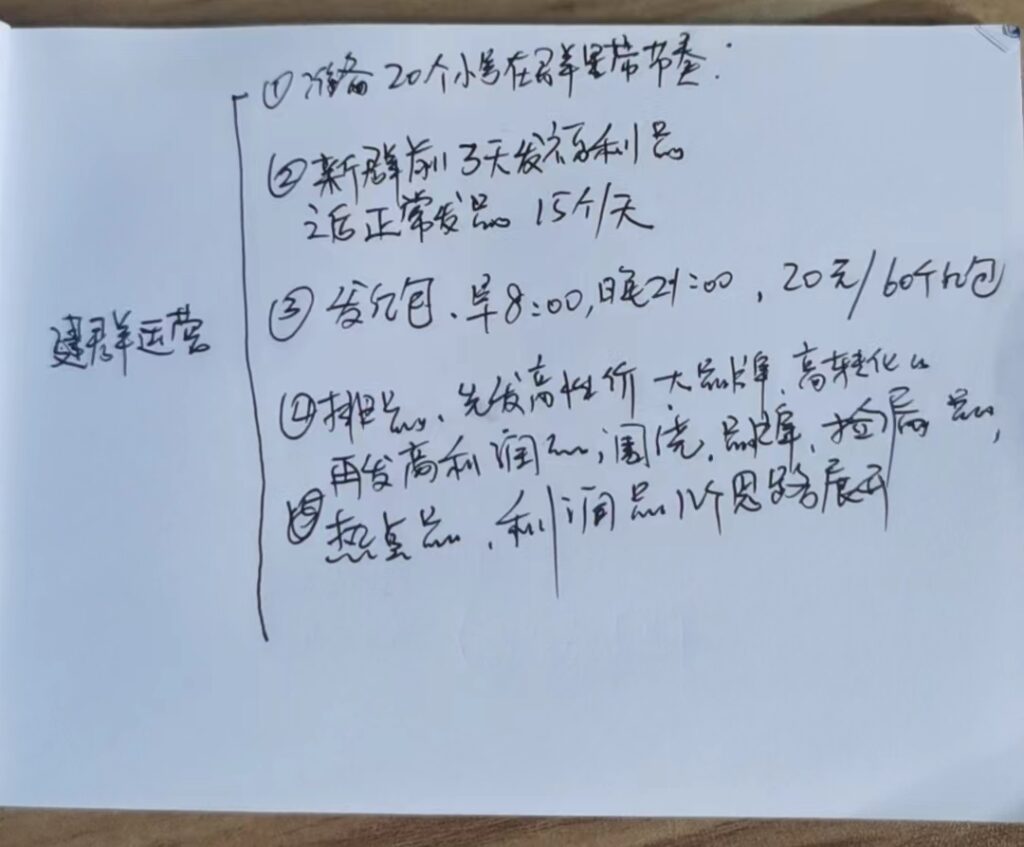 建群运营
①准备20个小号在群里带节奏.
②新群前3天发福利品
之后正常发品 15个/天
③发红包、早8:00,晚21:00,20元/60个红包
④排品、先发高性价 大品牌、高转化
再发高利润品;围绕,品牌、捡漏品,
⑤热点品、利润品几个思路展开